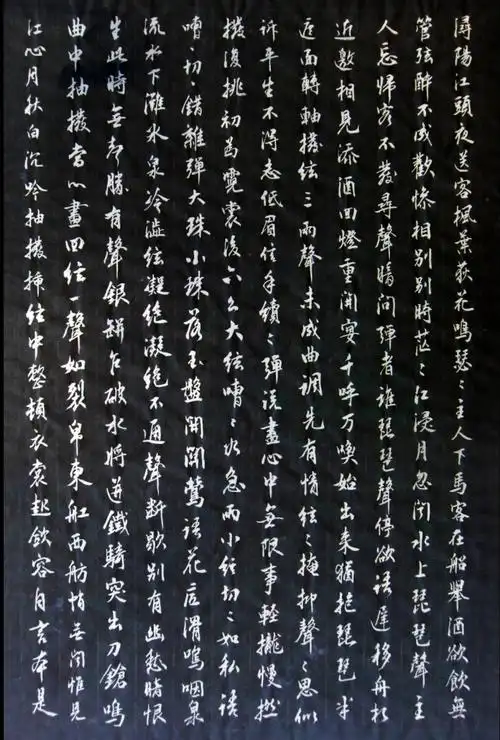 潯陽江頭夜送客楓葉荻花鳴瑟〻主人下馬客在船舉酒欲飲無
管弦醉不成歡慘相別別時茫〻江浸月忽聞水上琵琶聲主
人忘歸客不發尋聲暗問彈者誰琵琶聲停欲語遲移舟相
近邀相見添酒回燈重開宴千呼万喚始出来猶抱琵琶半
遮面轉軸撥絃三兩聲未成曲調先有情絃〻掩抑聲〻思似
訴平生不得志低眉信手續〻彈說盡心中無限事輕攏慢撚
撥復挑初為霓裳後六么大絃嘈〻急雨小絃切〻如私語
嘈〻切〻錯雜彈大珠小珠落玉盤間關鶯語花底滑鳴咽泉
流水下灘水泉冷澀絃凝絕凝絕不通聲漸歇別有幽愁暗恨
生此時無聲勝有聲銀瓶乍破水漿迸鐵騎突出刀鎗鳴
曲中抽撥當心畫四絃一聲如裂帛東船西舫悄無聞惟見
江心月秋白沉吟抽撥插絃中整頓衣裳起斂容自言本是